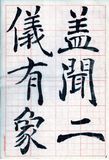 盖聞二
儀有象